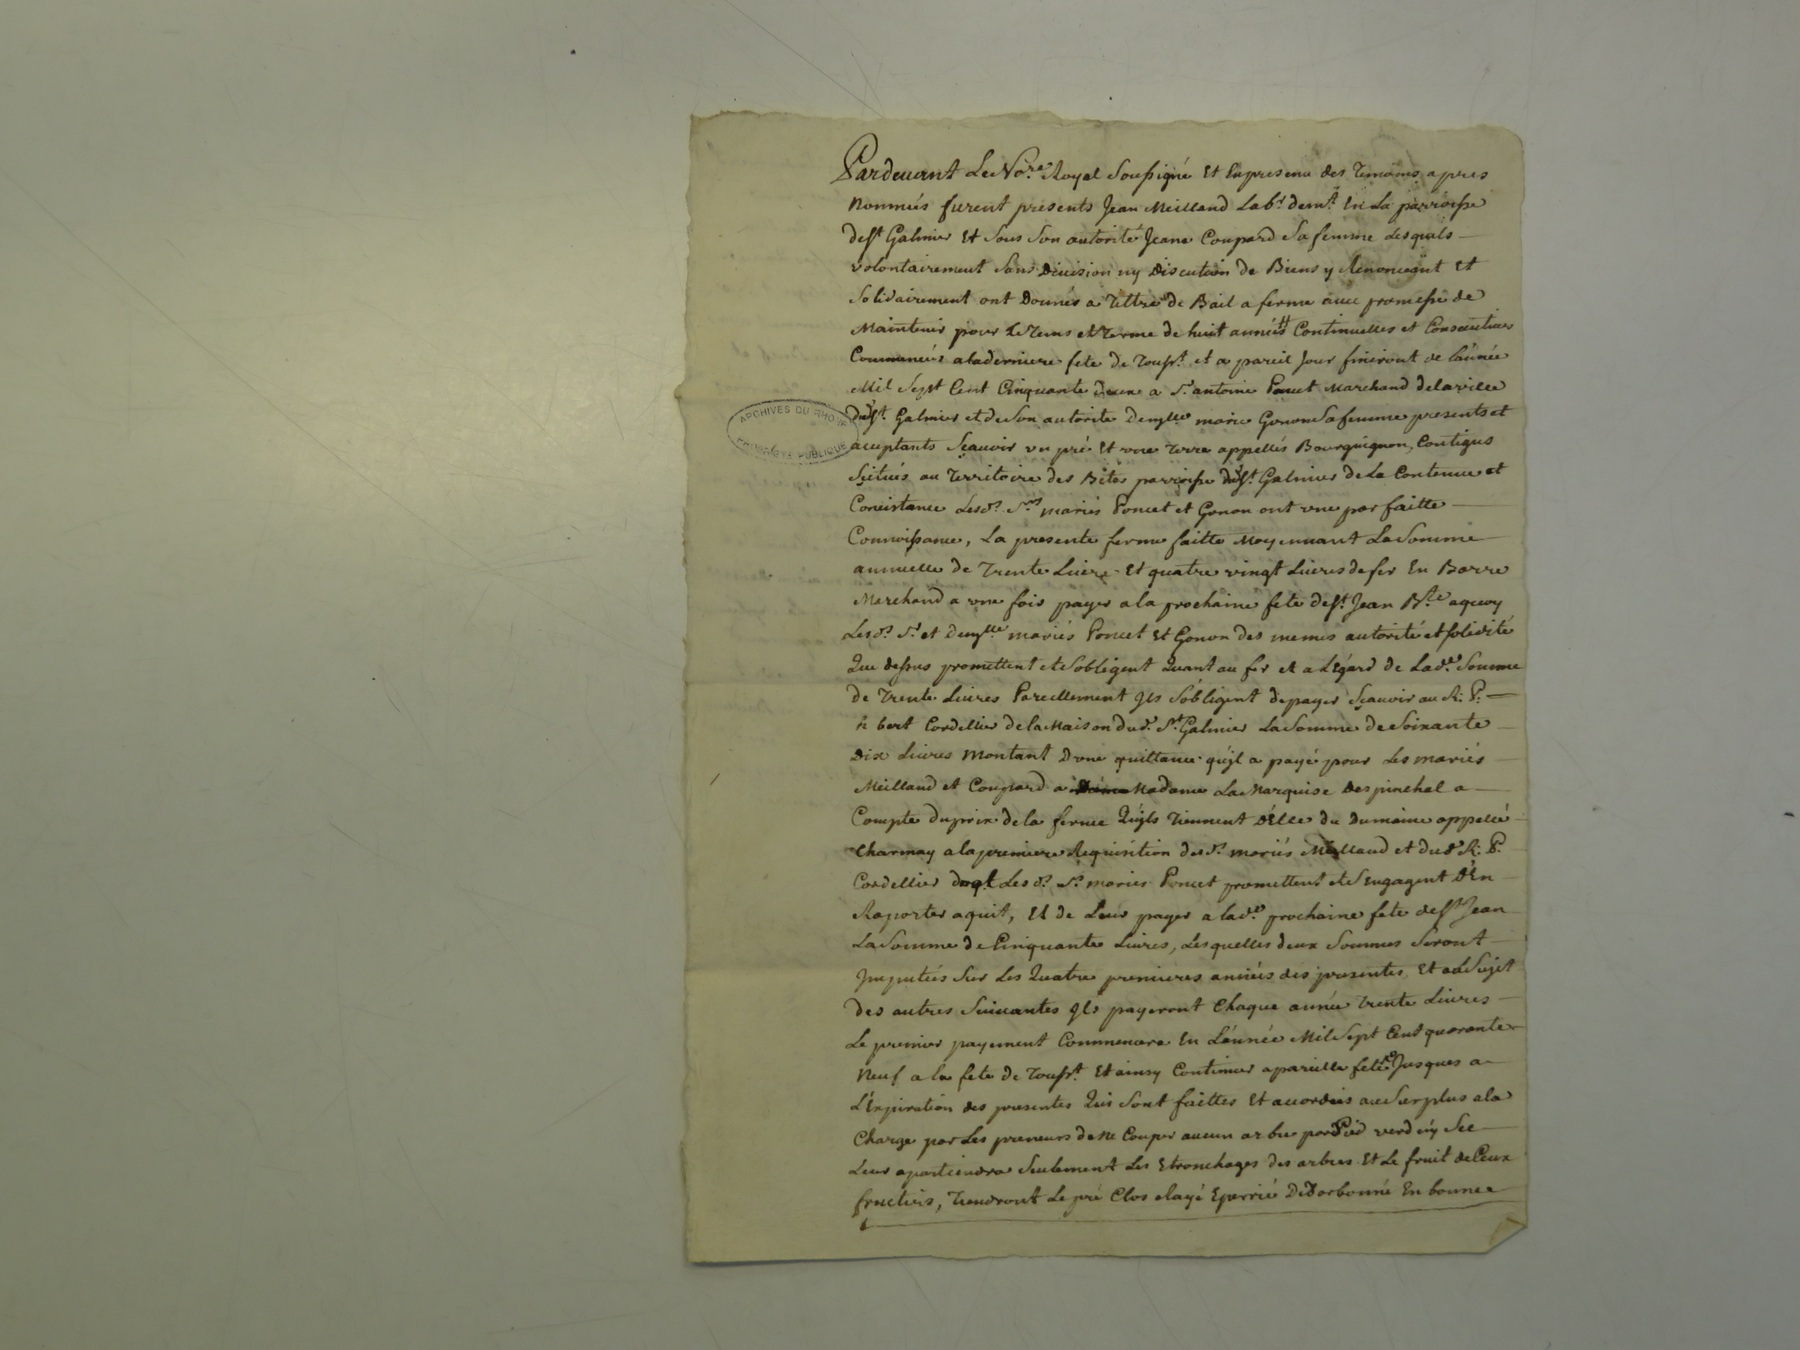 Pardevant Le No.re Royal Soussigné Et En presence des Temoins apres
Nommés furent presents Jean Meilland Lab.r dem.t En La parroisse
de S.t Galmier Et sous son autorité Jeane Coupard sa femme Lesquels
volontairement sans Division ny Discution de Biens y Renonceant Et
solidairement ont Donnés a Tittre de Bail a ferme avec promesse de
Maintenir pour Le Tems et Terme de huit années Continuelles et Consecutives
Commencées a la derniere fete de Touss.t et a pareil Jour finiront de l'année
Mil Sept Cent Cinquante Deux a S.r antoine Poncet Marchand de la ville
dud. S.t Galmier et de Son autorite Demlle marie Gonon sa femme presents et
acceptants Sçavoir un pré Et une Terre appellés Bourguignon, Contigus
Scitués au Territoire des Bêtes parroisse dud. S.t Galmier de La Contenue et
Concistance Lesd.s S.rs mariés Poncet et Gonon ont une parfaitte
Connoissance, La presente ferme faitte Moyennant La Somme
annuelle de Trente Livres Et quatre vingt Livres de fer En Barre
Marchand a une fois payer a la prochaine fete de S.t Jean B.te a quoy
Lesd.s S.r et Demlle mariés Poncet Et Gonon des memes autorité et solidité
Que dessus promettent et S'obligent Quant au fer et a L'Egard de Lad.e Somme
de Trente Livres Pareillement Ils S'obligent de payer Sçavoir au R. P.
bert Cordellier de la Maison dud. S.t Galmier La Somme de Soixante
Dix Livres Montant D'une quittance qu'il a payé pour Les mariés
Meilland et Coupard a Madame La Marquise Despinchal a
Compte du prix de la ferme Qu'ils Tiennent D'Elle du Dumaine appellé
Charmay a la premiere Requisition des d. mariés Meilland et dud. R. P.
Cordellier dont Lesd.s S.rs mariés Poncet promettent et S'engagent D'En
Raporter aquit, Et de Leur payer a lad.e prochaine fete de S.t Jean
La Somme de Cinquante Livres, Lesquelles deux Sommes Seront
Imputées Sur Les Quatre premieres années des presentes, Et au Sujet
Des autres Suivantes Ils payeront Chaque année Trente Livres
Le premier payement Commencera En L'année Mil Sept Cent quarante
Neuf a la fete de Touss.t Et ainsy Continuer a pareille fete Jusques a
L'Expiration des presentes Qui Sont faittes Et accordées au Surplus a la
Charge par Les preneurs de ne Couper aucun arbre par Pied verd ny Sec
Leur apartiendra Seulement Les Etronchages des arbres Et Le fruit de Ceux
fructiers, Tiendront Le pré Clos elayé Eparrié Detorbonné En bonne
ARCHIVES DU RHONE
PROPRIETE PUBLIQUE